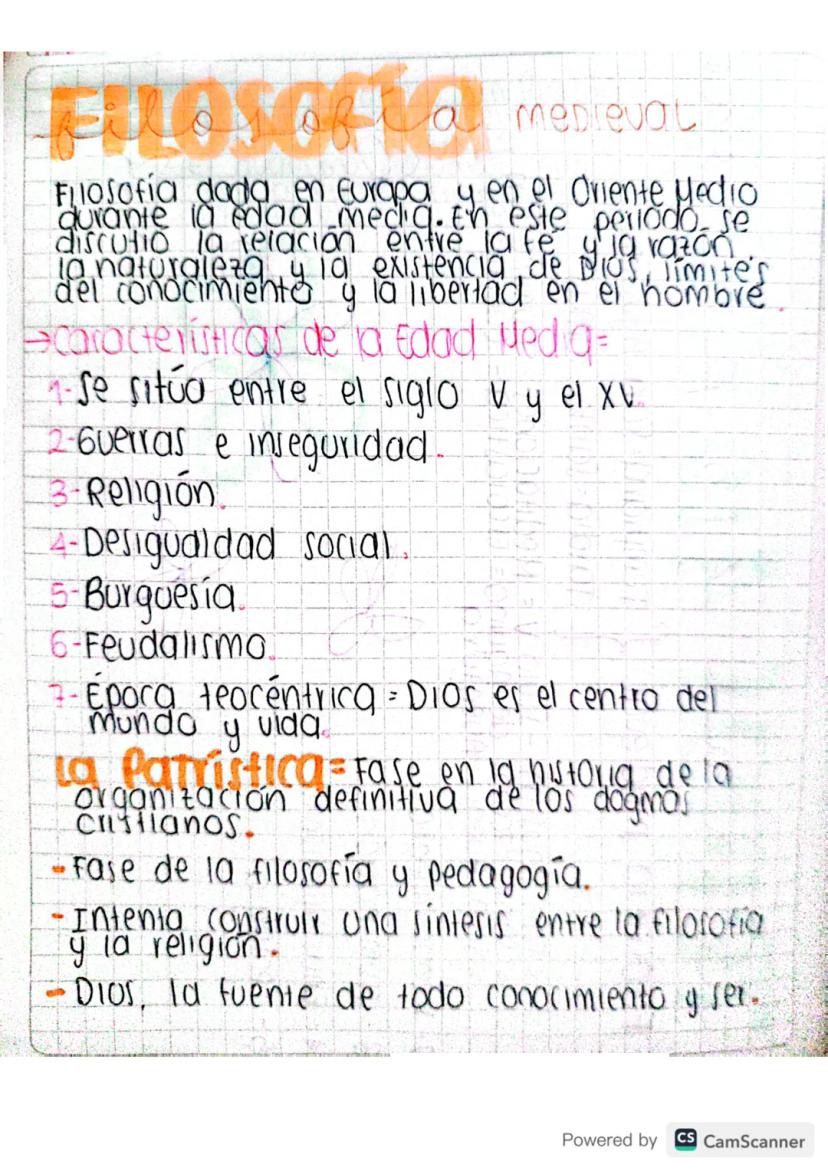 FILOSOFÍA medieval
filosofía
Filosofía dada en Europa y en el Oriente Medio
durante la edad media. En este periodo se
discutió la relación entre la fe y la razón,
la naturaleza y la existencia de Dios, límites
del conocimiento y la libertad en el hombre.
→Características de la Edad Media=
1-Se sitúa entre el siglo V y el XV.
2-Guerras e inseguridad.
3-Religión.
4-Desigualdad social.
5-Burguesía.
6-Feudalismo.
7-Época teocéntrica = Dios es el centro del
mundo y vida.
La Patrística= Fase en la historia de la
organización definitiva de los dogmas
cristianos.
-Fase de la filosofía y pedagogía.
-Intenta construir una síntesis entre la filosofía
y la religión.
-Dios, la fuente de todo conocimiento y ser.
Powered by CS CamScanner